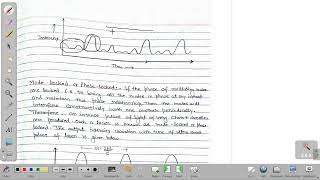 Intensity
Time →
Mode locked or Phase locked:- If the phase of oscillating modes
are locked i.e. to bring all the modes in phase at any instant
and maintain this phase relationship. Then the modes will
interfere constructively with one another periodically.
Therefore an intense pulses of light of very short duration
are produced. Such a laser is known as mode-locked or phase
locked. The output intensity variation with time of ultra short
pulses of laser is given below